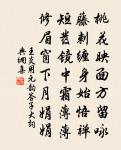 桃花映面方留咏
藤刺纏身始悟禪
短髮鏡中霜薄薄
修眉窗下月娟娟
王炎用元韵答子大詞
典倜集